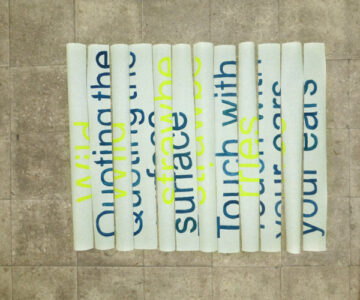 Wild
Quoting the
Wild
Quoting the
strawbe
surface
strawbe
Touch with
rries
your ears
your ears